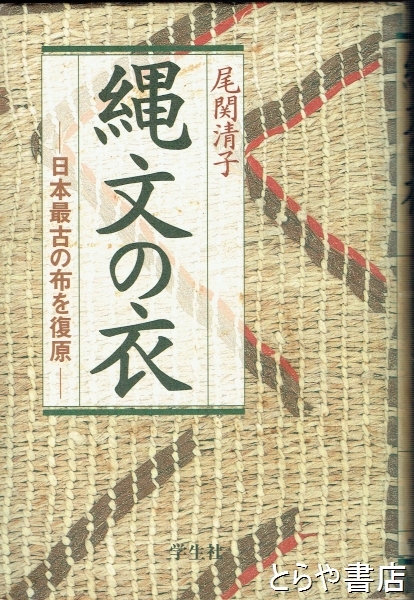 尾関清子
縄文の衣
―日本最古の布を復原―
学生社
とらや書店